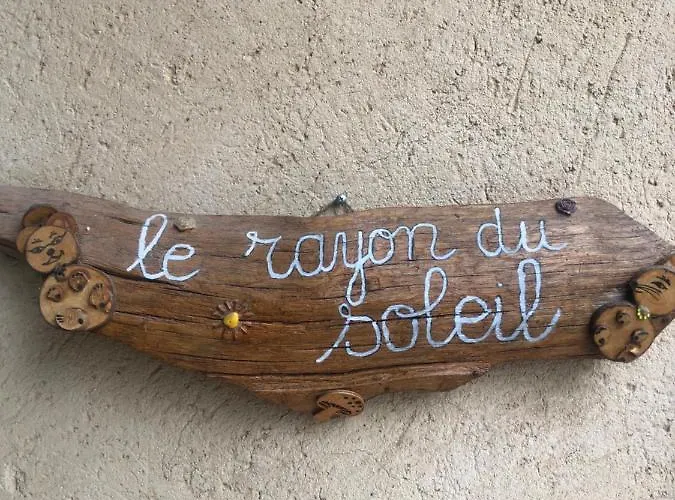 le rayon du
soleil